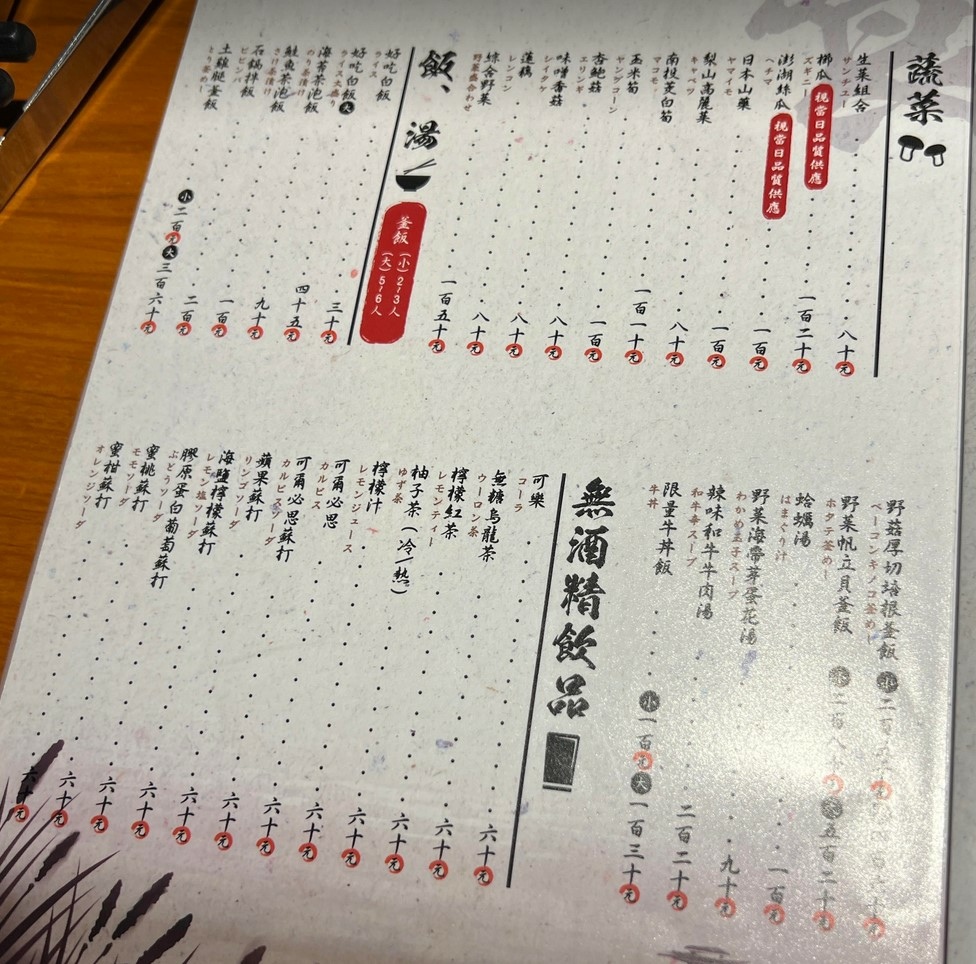 蔬菜
生菜組合 八十元
サンチュー
櫛瓜 視當日品質供應 一百二十元
ズギニー
澎湖絲瓜 視當日品質供應 一百元
ヘチマ
日本山藥 一百元
ヤマイモ
梨山高麗菜 八十元
キャベツ
南投茭白筍 一百一十元
マコモ
玉米筍 一百元
ヤングコーン
杏鮑菇 八十元
エリンギ
味噌香菇 八十元
シイタケ
蓮藕 八十元
レンコン
綜合野菜 一百五十元
野菜盛合わせ
飯、湯
釜飯 (小)2~3人 (大)5~6人
好吃白飯 三十元
ライス
好吃白飯 大 四十五元
ライス大盛り
海苔茶泡飯 九十元
のり茶漬け
鮭魚茶泡飯 一百元
さけ茶漬け
石鍋拌飯 二百元
ビビンバ
土雞腿釜飯 小 二百元 大 三百六十元
とり釜めし
野菇厚切培根釜飯 小 二百
ベーコンキノコ釜めし
野菜帆立貝釜飯 小 二百八十元 大 五百二十元
ホタテ釜めし
蛤蠣湯 一百元
はまぐり汁
野菜海帶芽蛋花湯 九十元
わかめ玉子スープ
辣味和牛牛肉湯 二百二十元
和牛辛スープ
限量牛丼飯 小 一百元 大 一百三十元
牛丼
無酒精飲品
可樂 六十元
コーラ
無糖烏龍茶 六十元
ウーロン茶
檸檬紅茶 六十元
レモンティー
柚子茶(冷/熱) 六十元
ゆず茶
檸檬汁 六十元
レモンジュース
可爾必思 六十元
カルピス
可爾必思蘇打 六十元
カルピスソーダ
蘋果蘇打 六十元
リンゴソーダ
海鹽檸檬蘇打 六十元
レモン塩ソーダ
膠原蛋白葡萄蘇打 六十元
ぶどうソーダ
蜜桃蘇打 六十元
モモソーダ
蜜柑蘇打 六十元
オレンジソーダ